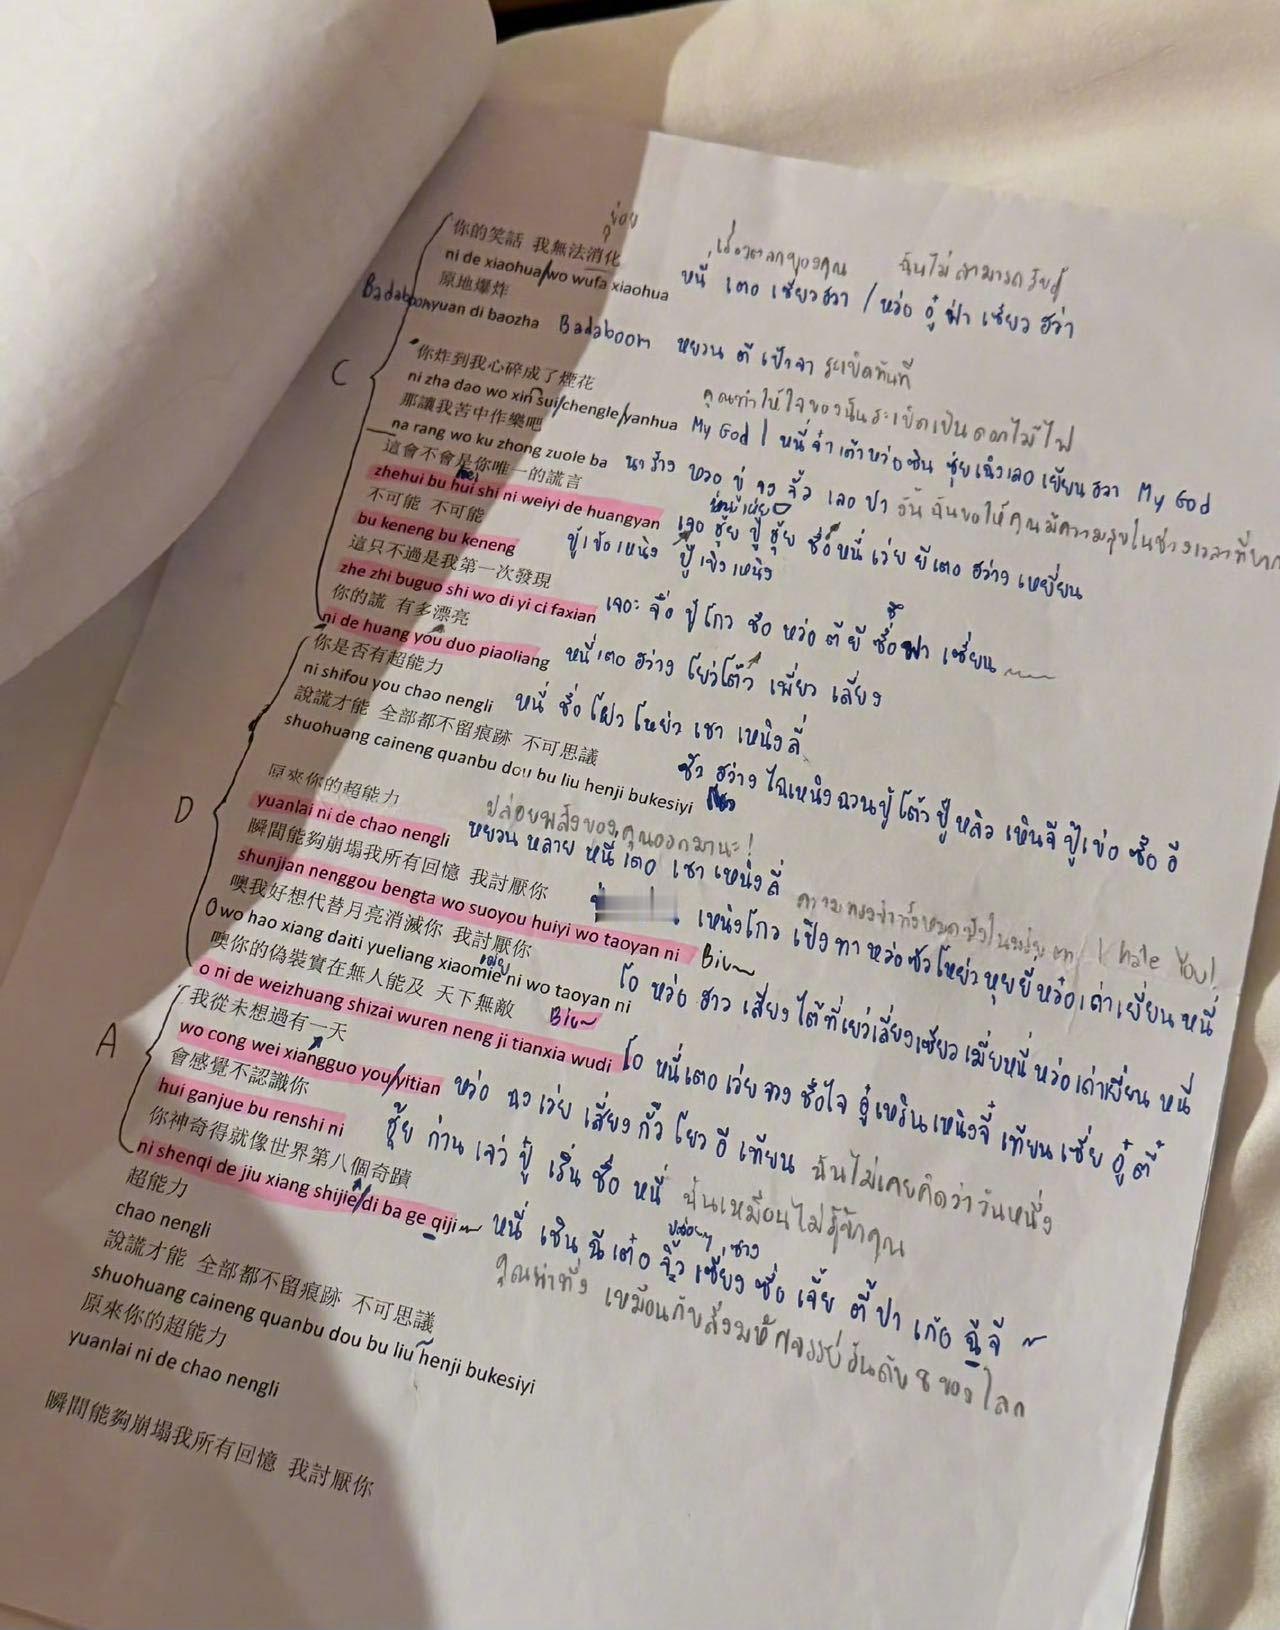 ย่อย
你的笑話 我無法消化
เรื่องตลกของคุณ ฉันไม่สามารถรับรู้
ni de xiaohua/wo wufa xiaohua หนี่ เตอ เซี่ยวฮวา / หว่อ อู๋ ฝ่า เซียว ฮว่า
原地爆炸
Badaboom yuan di baozha Badaboom หยวน ตี้ เป้าจา ระเบิดทันที
C
你炸到我心碎成了煙花
คุณทำให้ใจของฉันระเบิดเป็นดอกไม้ไฟ
ni zha dao wo xin sui/chengle/yanhua My God / หนี่ จ้า เต้า หว่อ ซิน ซุ่ย เฉิงเลอ เยียนฮวา My God
那讓我苦中作樂吧
na rang wo ku zhong zuole ba นา ร้าง หว่อ ขู่ จง จั้ว เลอ ปา งั้นฉันขอให้คุณมีความสุขในช่วงเวลาที่ยาก
這會不會是你唯一的謊言
zhehui bu hui shi ni weiyi de huangyan เจอ ฮุ้ย ปู๋ ฮุ้ย ซื่อ หนี่ เว่ย ยี เตอ ฮว่าง เหยียน
不可能 不可能
bu keneng bu keneng ปู้ เข่อ เหนิง ปู้ เข่อ เหนิง
這只不過是我第一次發現
zhe zhi buguo shi wo di yi ci faxian เจอะ จื่อ ปู๋ โกว ซือ หว่อ ตี้ ยี ซื่อ ฟา เซี่ยน
你的謊 有多漂亮
ni de huang you duo piaoliang หนี่ เตอ ฮว่าง โย่วโต๊ว เพี่ยว เลี่ยง
D
你是否有超能力
ni shifou you chao nengli หนี่ ซื่อ โฝ่ว โหย่ว เชา เหนิง ลี่
說謊才能 全部都不留痕跡 不可思議
shuohuang caineng quanbu dou bu liu henji bukesiyi ซัว ฮว่าง ไฉเหนิง ฉวนปู้ โต้ว ปู๋ หลิว เหินจี ปู้เข่อ ซือ อี
原來你的超能力
ปล่อยพลังของคุณออกมานะ!
yuanlai ni de chao nengli หยวน หลาย หนี่ เตอ เชา เหนิง ลี่
瞬間能夠崩塌我所有回憶 我討厭你
I hate You!
shunjian nenggou bengta wo suoyou huiyi wo taoyan ni เหนิงโกว เปิงทา หว่อซัวโหย่วหุยยี่ หว่อ เถ่าเยี่ยน หนี่
噢我好想代替月亮消滅你 我討厭你 Biu~
O wo hao xiang daiti yueliang xiaomie ni wo taoyan ni โอ หว่อ ฮาว เสี่ยง ไต้ที่เยว่เลี่ยงเซียวเมี่ยหนี่ หว่อ เถ่าเยี่ยน หนี่
噢你的偽裝實在無人能及 天下無敵 Biu~
o ni de weizhuang shizai wuren neng ji tianxia wudi โอ หนี่เตอ เว่ย จวง ซื่อไจ อู๋เหริน เหนิงจี๋ เทียน เซี่ย อู๋ ตี๋
A
我從未想過有一天
wo cong wei xiangguo you/yitian หว่อ ฉง เว่ย เสี่ยง กั๊ว โยว อี เทียน ฉันไม่เคยคิดว่าวันหนึ่ง
會感覺不認識你
hui ganjue bu renshi ni ฮุ้ย ก่าน เจว่ ปู๋ เริ่น ซื่อ หนี่ ฉันเหมือนไม่รู้จักคุณ
你神奇得就像世界第八個奇蹟
ni shenqi de jiu xiang shijie/di ba ge qiji~ หนี่ เชิน ฉี เต๋อ จิ้ว เซี่ยง ซื่อ เจี้ย ตี้ ปา เก้อ ฉีจี ~
超能力
คุณน่าทึ่ง เหมือนกับสิ่งมหัศจรรย์อันดับ 8 ของโลก
chao nengli
說謊才能 全部都不留痕跡 不可思議
shuohuang caineng quanbu dou bu liu henji bukesiyi
原來你的超能力
yuanlai ni de chao nengli
瞬間能夠崩塌我所有回憶 我討厭你